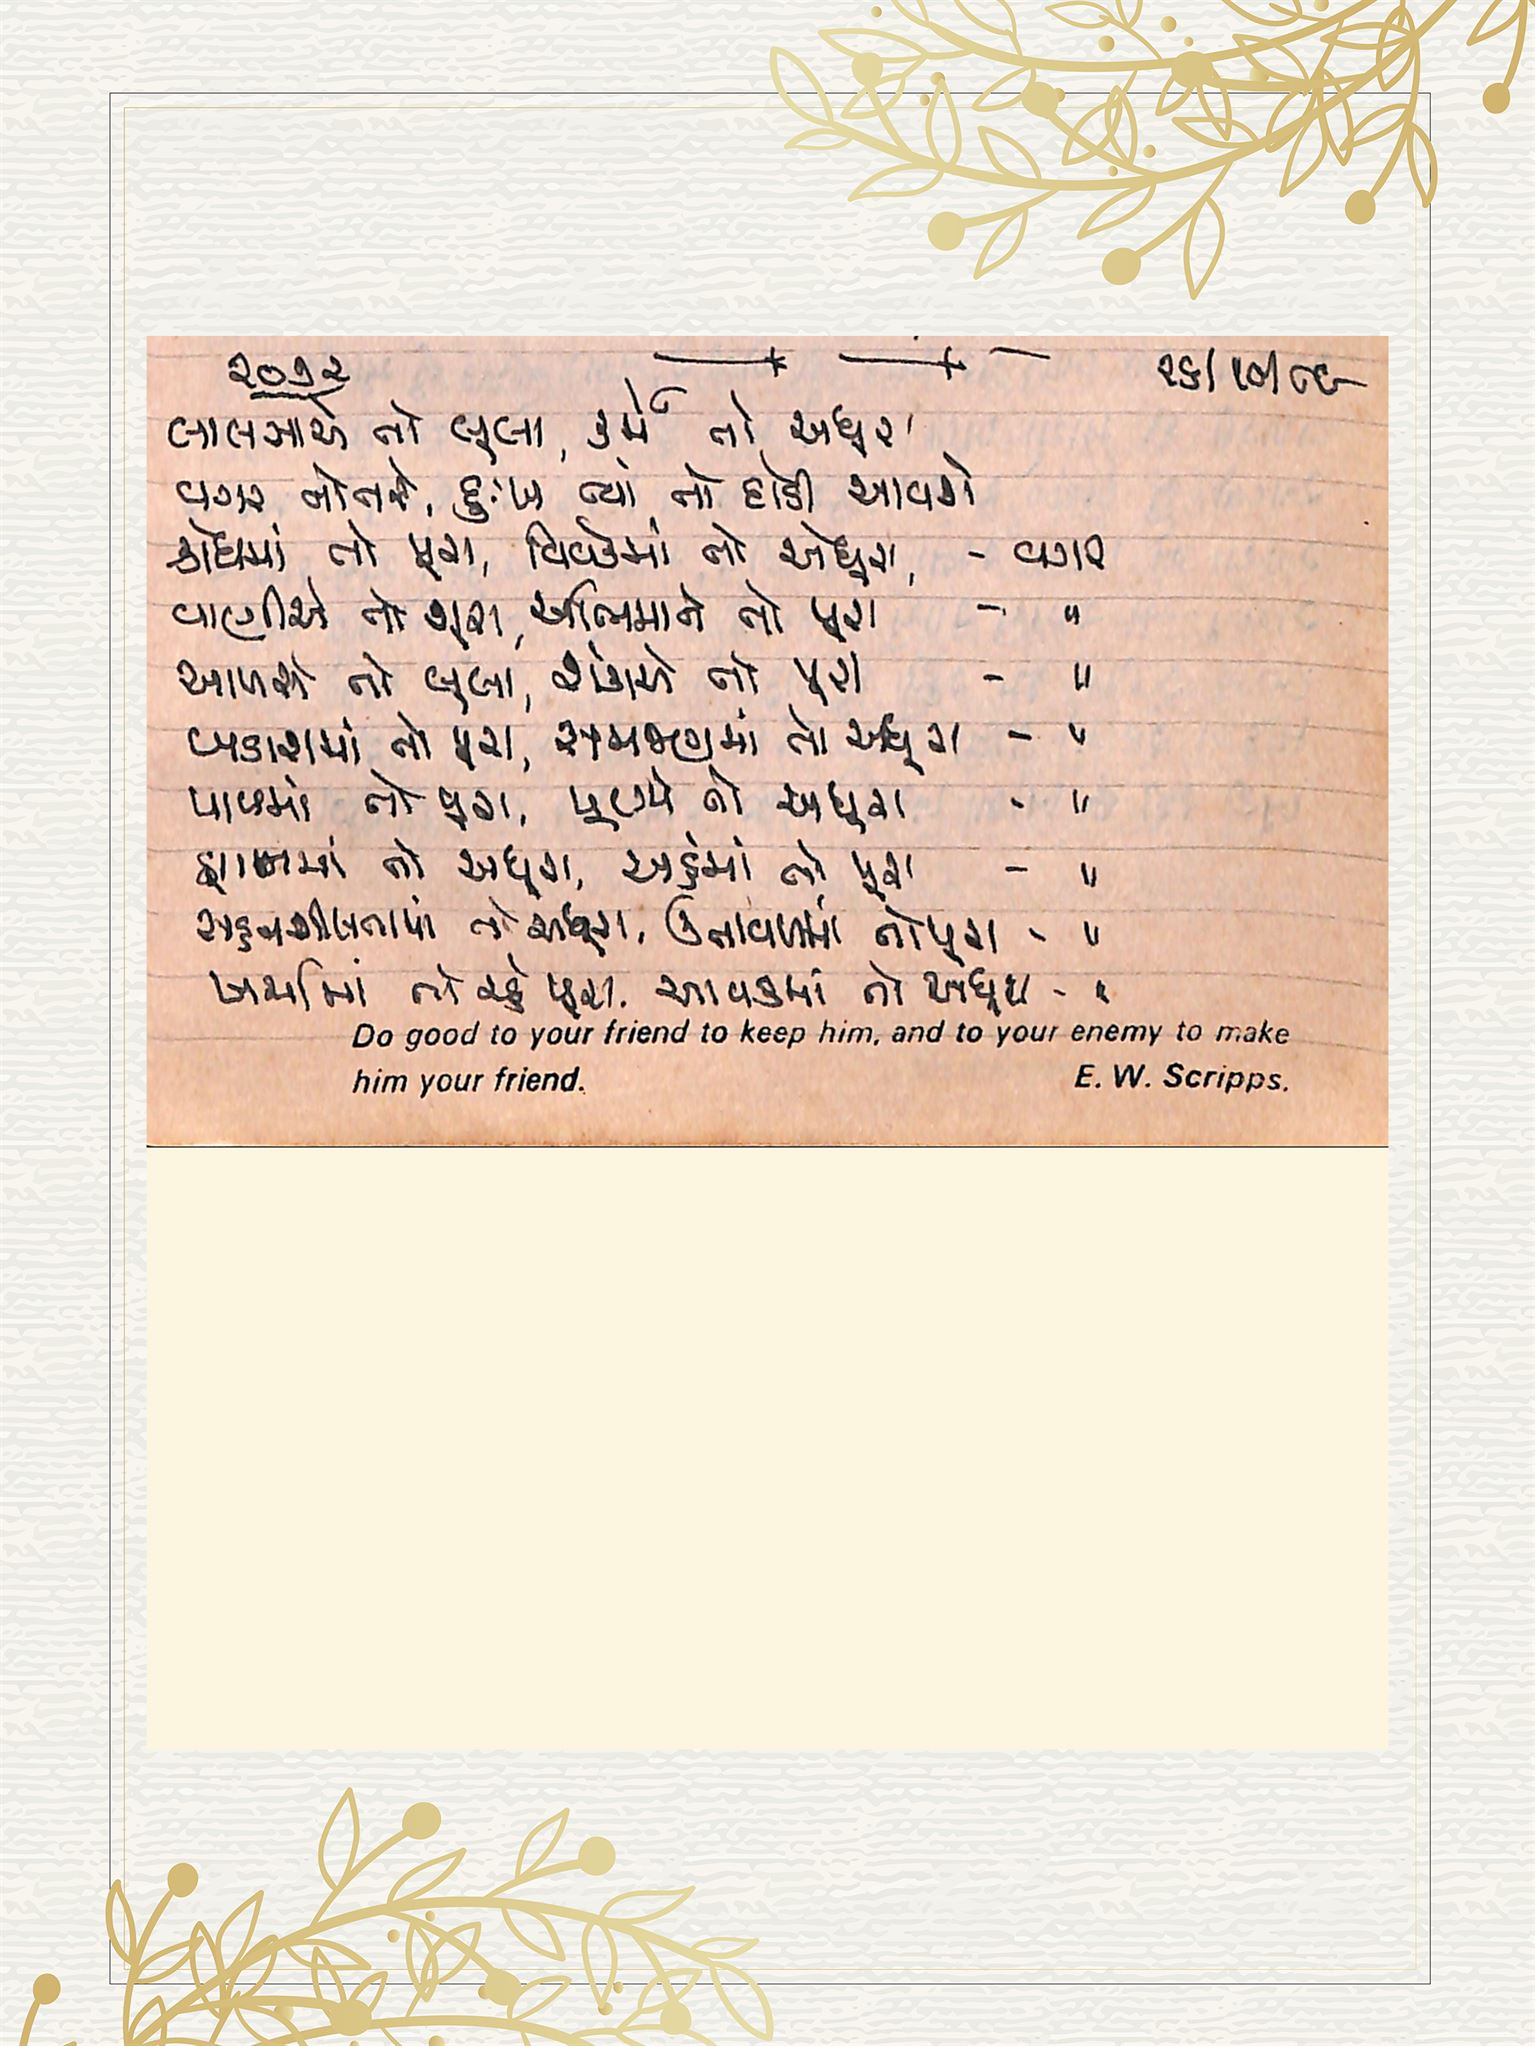 ૨૦૧૨ ૨૬/૧૦/૮૯
લાલસાએ તો લૂલા, કર્મે તો અધૂરા
વગર નોતરે, દુઃખ ત્યાં તો દોડી આવશે
ક્રોધમાં તો પૂરા, વિવેકમાં તો અધૂરા, - વગર
વાણીએ તો શૂરા, અભિમાને તો પૂરા - "
આળસે તો લૂલા, શંકાએ તો પૂરા - "
બકાશમાં તો પૂરા, સમજણમાં તો અધૂરા - "
પાપમાં તો પૂરા, પૂણ્યે તો અધૂરા - "
જ્ઞાનમાં તો અધૂરા, અહંમાં તો પૂરા - "
સહનશીલતામાં તો અધૂરા, ઉતાવળમાં તો પૂરા - "
ખર્ચામાં તો રહે પૂરા, આવકમાં તો અધૂરા - "
Do good to your friend to keep him, and to your enemy to make
him your friend. E. W. Scripps.